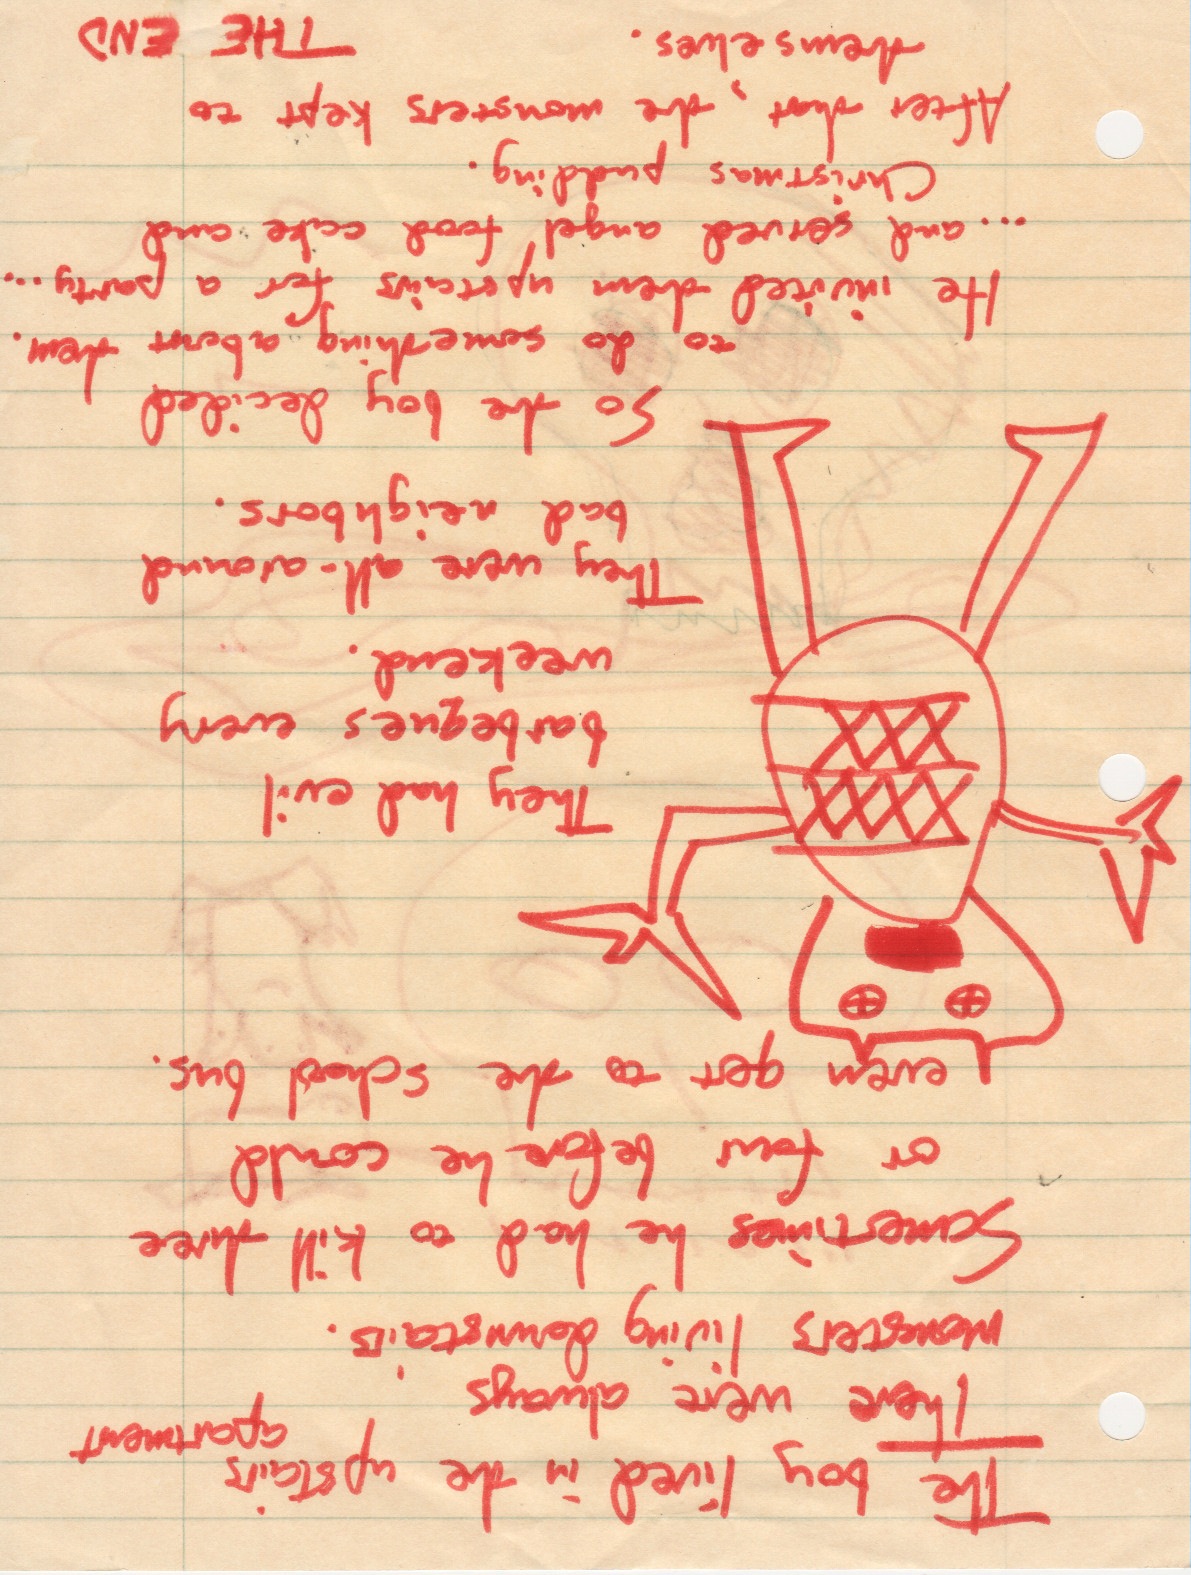 The boy lived in the upstairs
apartment
There were always
monsters living downstairs.
Sometimes he had to kill three
or four before he could
even get to the school bus.
They had evil
barbeques every
weekend.
They were all-around
bad neighbors.
So the boy decided
to do something about them.
He invited them upstairs for a party...
...and served angel food cake and
Christmas pudding.
After that, the monsters kept to
themselves.
THE END